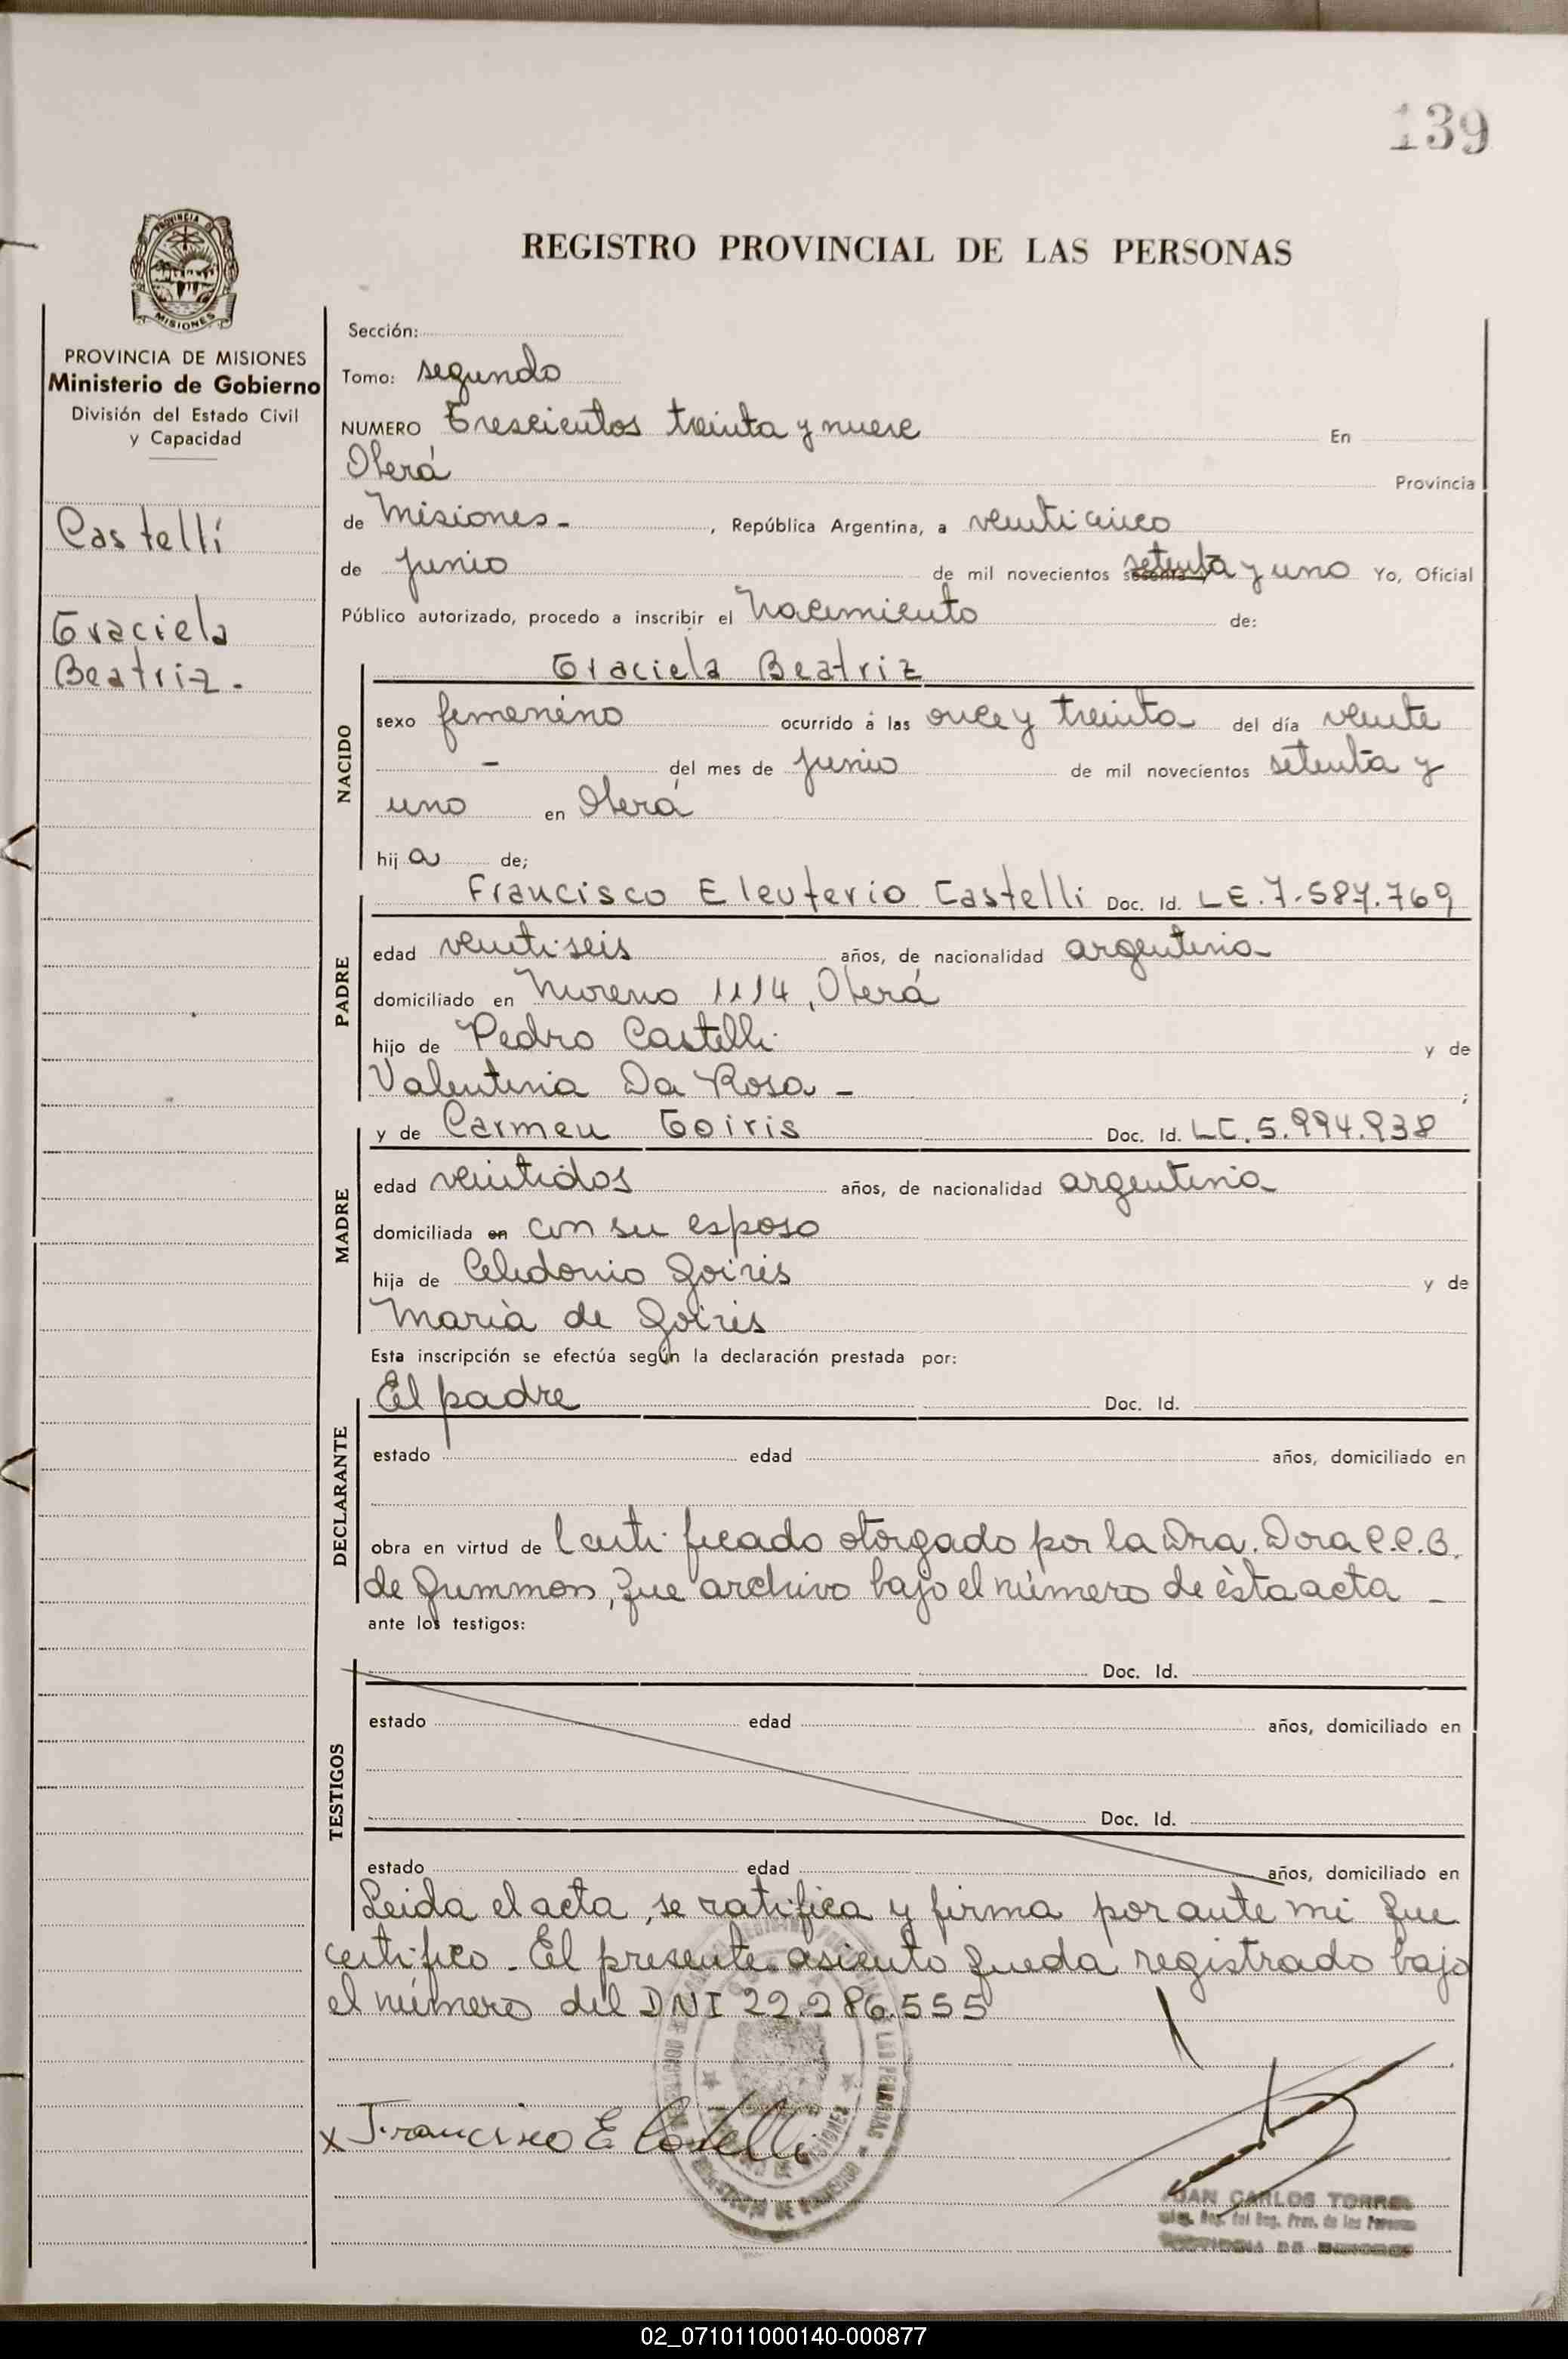 139
PROVINCIA DE
MISIONES
REGISTRO PROVINCIAL DE LAS PERSONAS
PROVINCIA DE MISIONES
Ministerio de Gobierno
División del Estado Civil
y Capacidad
Castelli
Graciela
Beatriz.
Sección:
Tomo: segundo
NUMERO Trescientos treinta y nueve En
Oberá Provincia
de Misiones - , República Argentina, a veinticinco
de junio de mil novecientos setenta y uno Yo, Oficial
Público autorizado, procedo a inscribir el Nacimiento de:
Graciela Beatriz
NACIDO
sexo femenino ocurrido á las once y treinta del día veinte
- del mes de junio de mil novecientos setenta y
uno en Oberá
hij a de;
Francisco Eleuterio Castelli Doc. Id. LE. 7.587.769
PADRE
edad veintiseis años, de nacionalidad argentina
domiciliado en Moreno 1114, Oberá
hijo de Pedro Castelli y de
Valentina Da Rosa - ;
y de Carmen Goiris Doc. Id. LC. 5.994.938
MADRE
edad veintidos años, de nacionalidad argentina
domiciliada en con su esposo
hija de Celedonio Goiris y de
María de Goiris
Esta inscripción se efectúa según la declaración prestada por:
El padre Doc. Id.
DECLARANTE
estado edad años, domiciliado en
obra en virtud de Certificado otorgado por la Dra. Dora C.C.B.
de Jummon, que archivo bajo el número de ésta acta -
ante los testigos:
TESTIGOS
Doc. Id.
estado edad años, domiciliado en
Doc. Id.
estado edad años, domiciliado en
Leida el acta, se ratifica y firma por ante mi que
certifico - El presente asiento queda registrado bajo
el número del DNI 22.286.555
x Francisco E Castelli
JUAN CARLOS TORRES
02_071011000140-000877